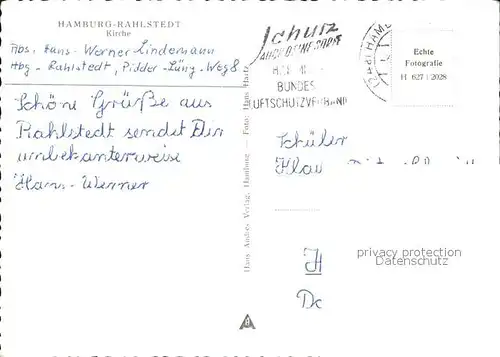 HAMBURG-RAHLSTEDT
Kirche
Abs. Hans-Werner Lindemann
Hbg-Rahlstedt, Pidder-Lüng-Weg 8
Schöne Grüße aus
Rahlstedt sendet Dir
unbekanterweise
Hans-Werner
Hans Andres Verlag, Hamburg — Foto: Hans Hartz
Schutz
AUCH DEINE SORGE
BUNDES
LUFTSCHUTZVERBAND
HAM
Echte
Fotografie
H 627 / 2028
Schüler
Klau
H
De
privacy protection
Datenschutz